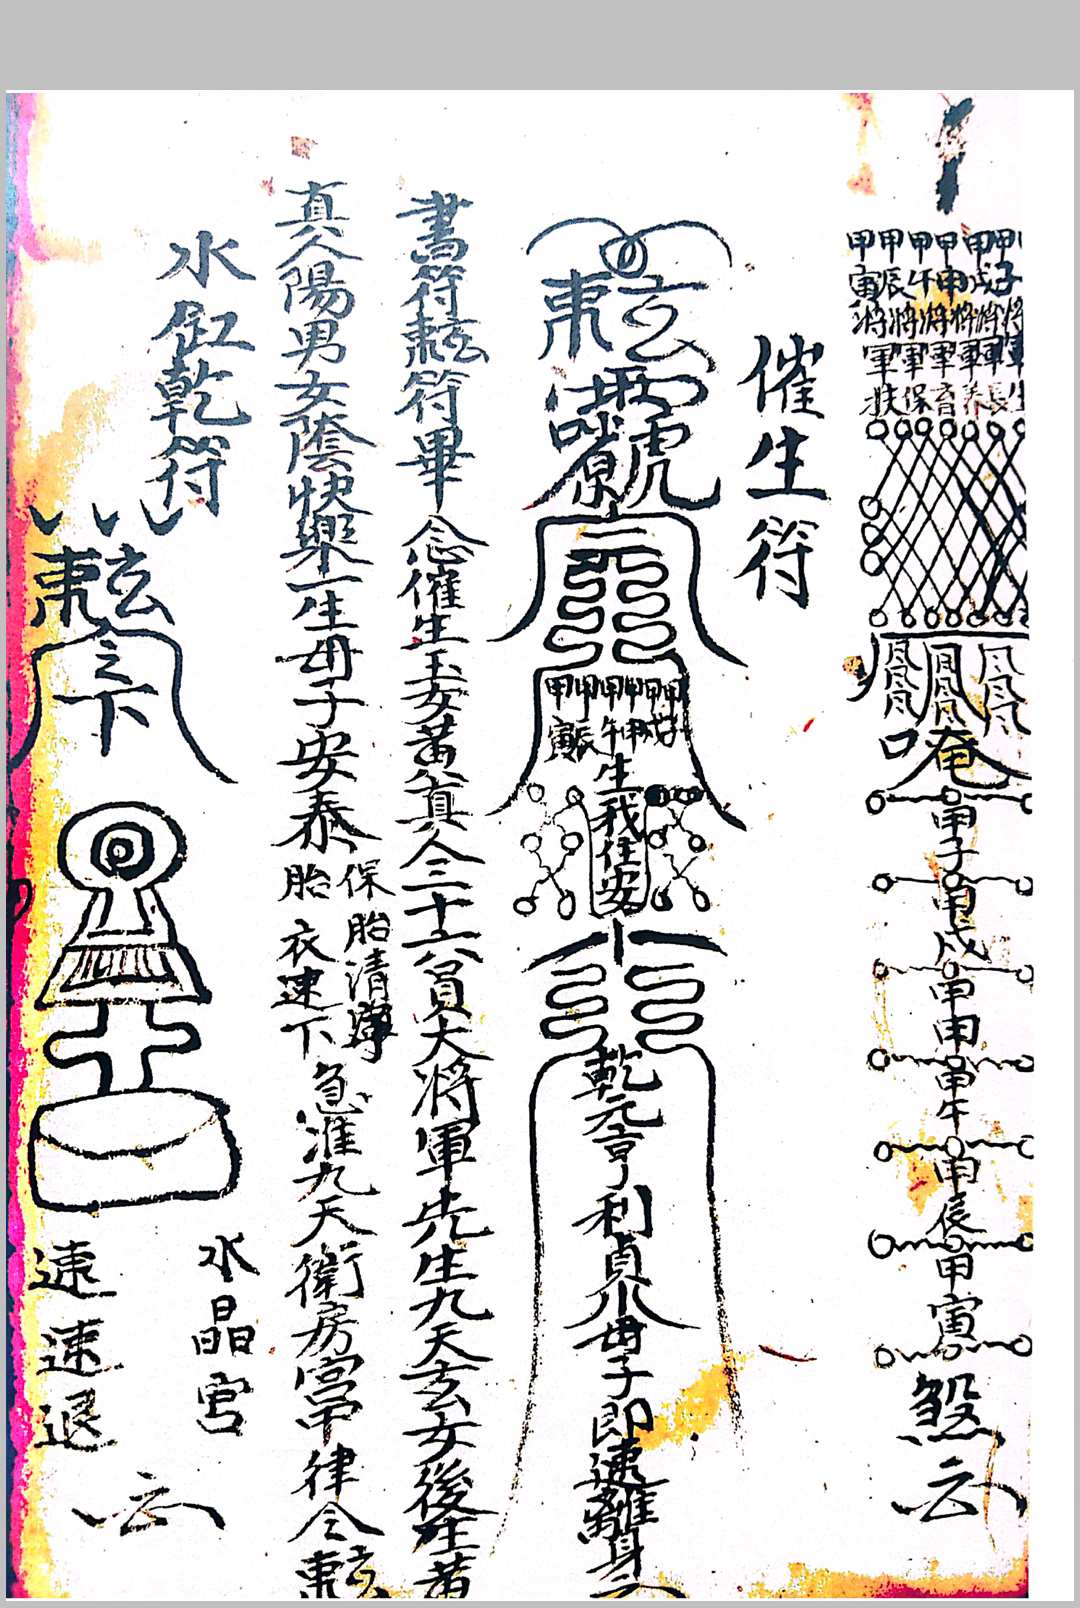 甲子將軍
甲戌將軍長
甲申將軍養
甲午將軍育
甲辰將軍保
甲寅將軍扶
唵
甲子
甲戌
甲申
甲午
甲辰
甲寅
煞
云
催生符
甲子甲戌甲申甲午甲辰甲寅
生我住安
乾元亨利貞
母子即速離身
書符
符畢念催生玉女黃公真人三十六員大將軍先生九天玄女後生黃
真人陽男女陰快樂一生母子安泰
保胎清寧
胎衣速下
急准九天衛房宮中律令
水缸乾符
之下
水晶宮
速速退
云